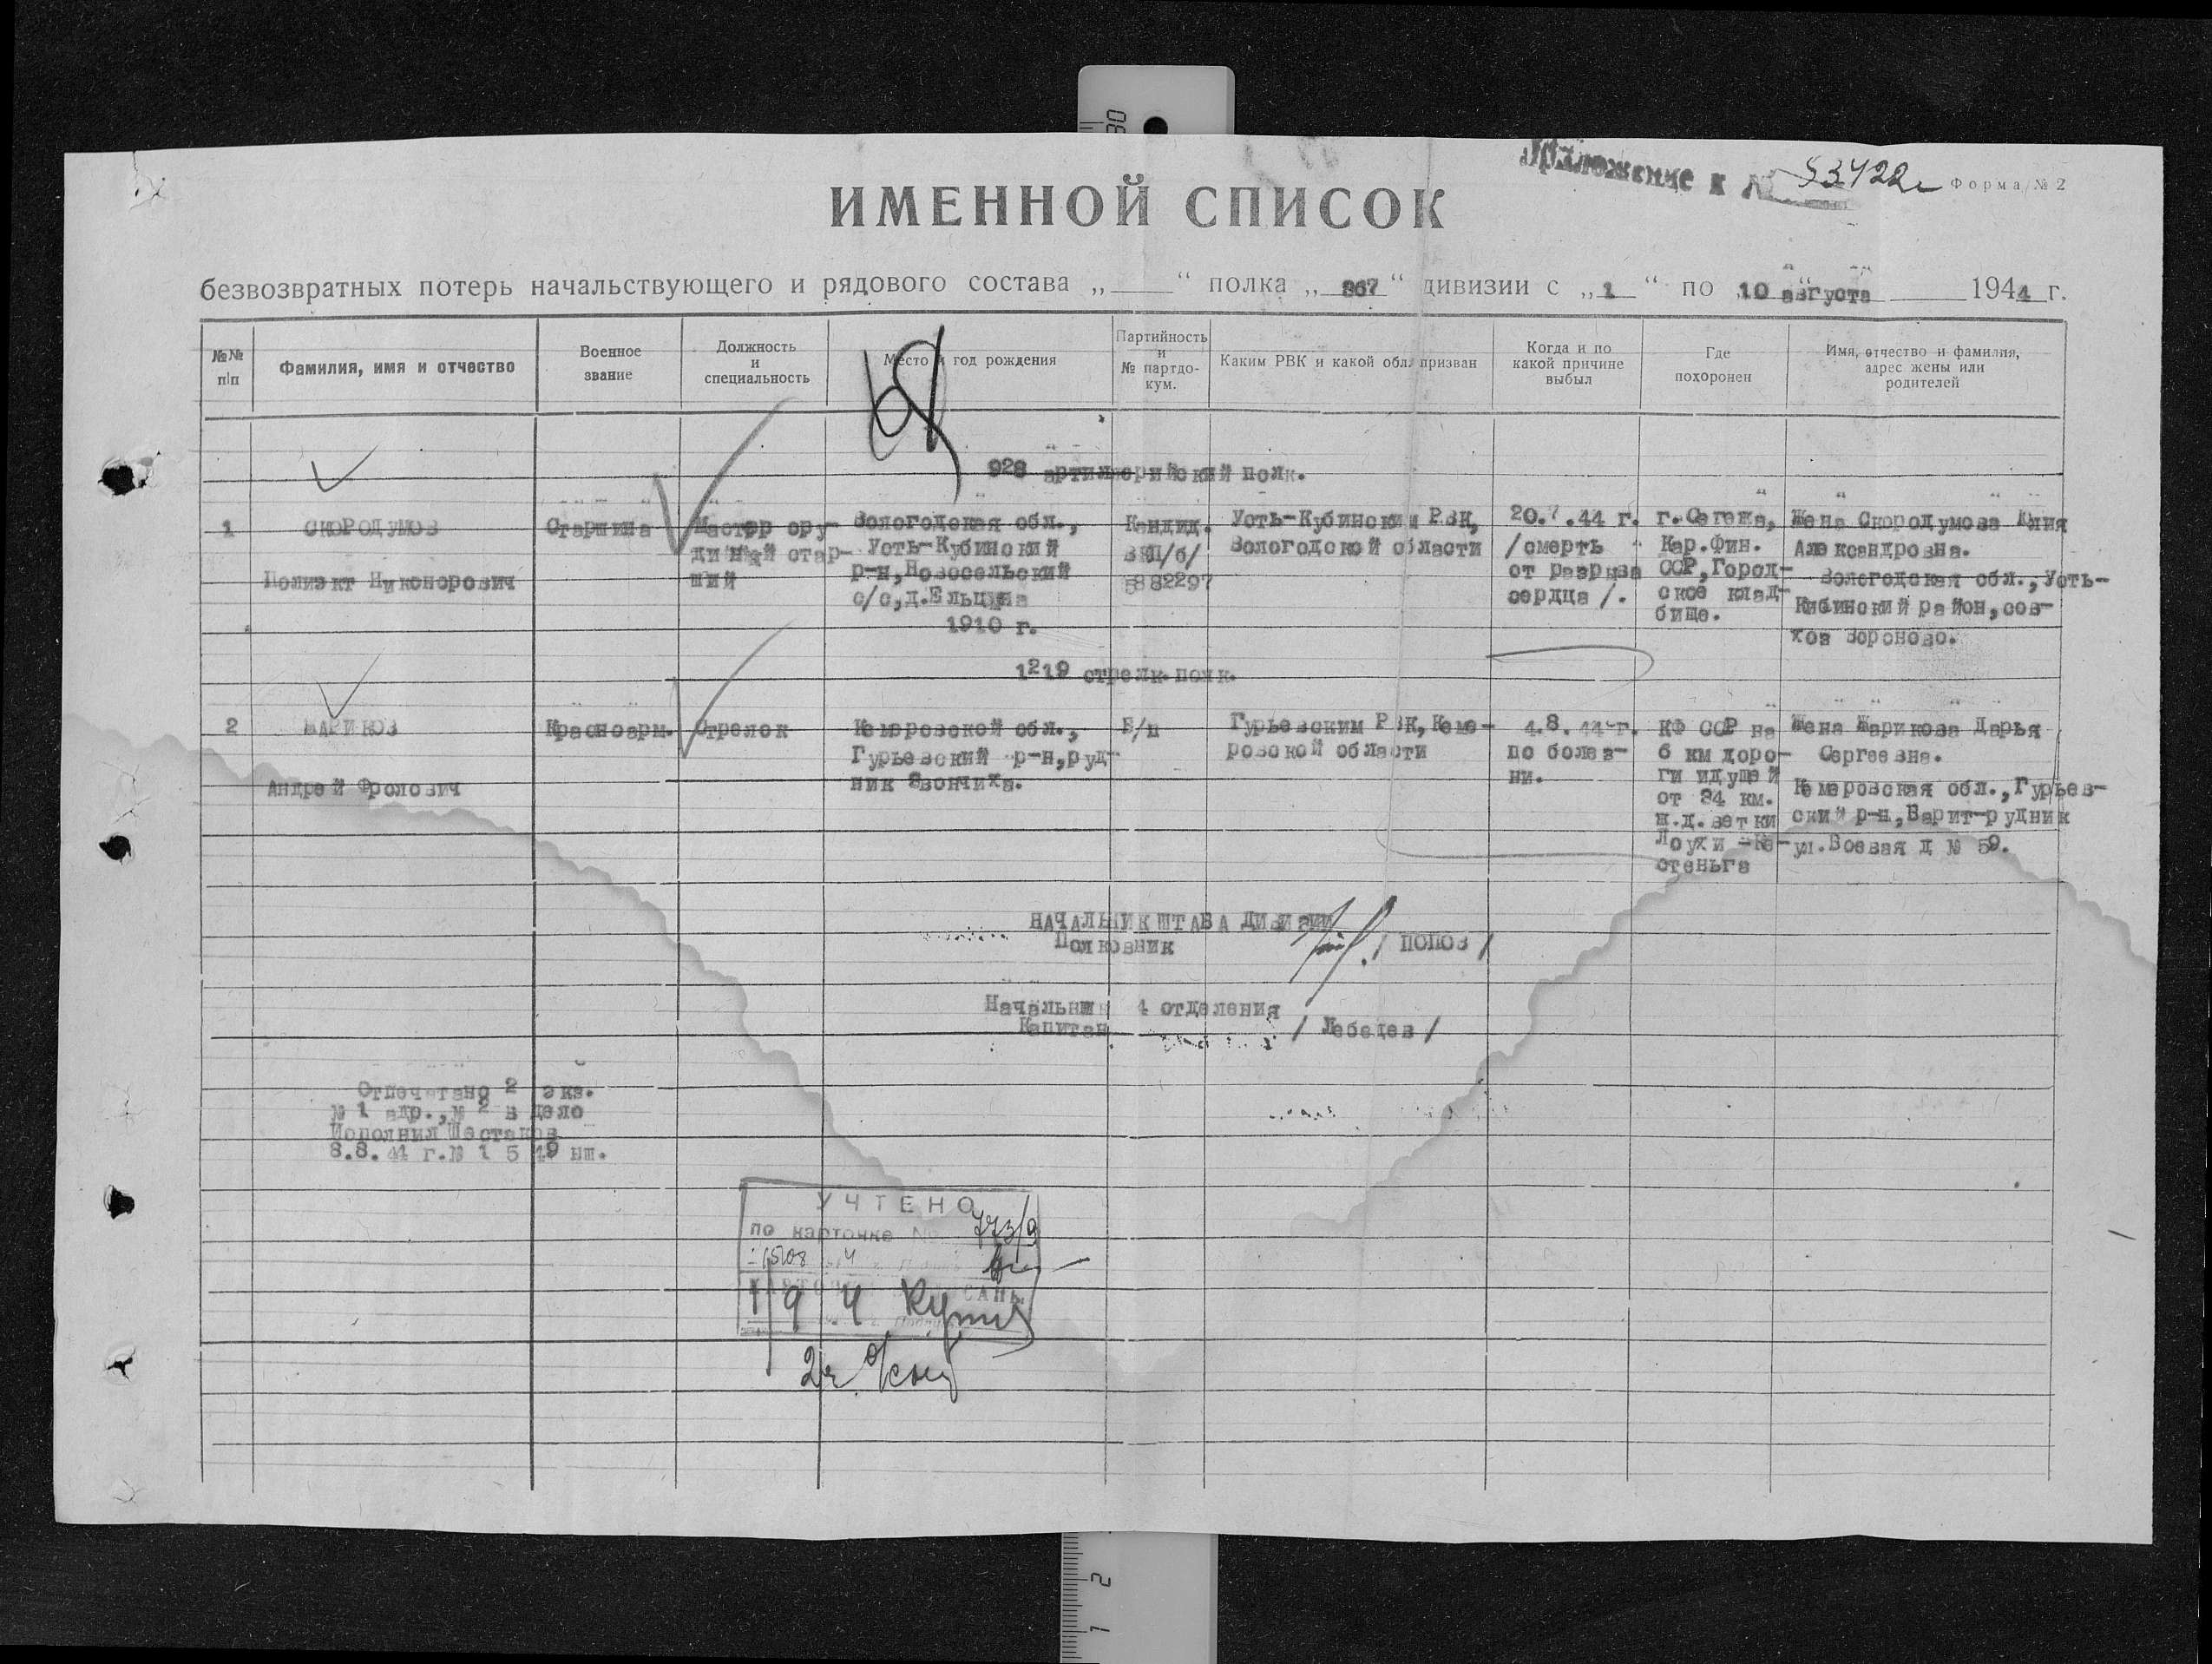 Приложение к № 53422с Форма № 2
ИМЕННОЙ СПИСОК
безвозвратных потерь начальствующего и рядового состава „ “ полка „ 367 “ дивизии с „ 1 “ по „ 10 “ августа 1944 г.
№№ п/п
Фамилия, имя и отчество
Военное
звание
Должность
и
специальность
Место и год рождения
Партийность
и
№ партдо-
кум.
Каким РВК и какой обл. призван
Когда и по
какой причине
выбыл
Где
похоронен
Имя, отчество и фамилия,
адрес жены или
родителей
928 артиллерийский полк.
1
СКОРОДУМОВ
Полиэкт Никонорович
Старшина
Мастер ору-
дийный стар-
ший
Вологодская обл.,
Усть-Кубинский
р-н, Новосельский
с/с, д.Ельцына
1910 г.
Кандид.
ВКП/б/
5882297
Усть-Кубинским РВК,
Вологодской области
20.7.44 г.
/смерть
от разрыва
сердца/.
г.Сегежа,
Кар.Фин.
ССР, Город-
ское клад-
бище.
Жена Скородумова Юлия
Александровна.
Вологодская обл., Усть-
Кибинский район, сов-
хоз Вороново.
1219 стрелк.полк.
2
ЖАРИКОВ
Андрей Фролович
Красноарм.
Стрелок
Кемеровской обл.,
Гурьевский р-н, руд-
ник Звончиха.
Б/п
Гурьевским РВК, Кеме-
ровской области
4.8.44 г.
по болез-
ни.
КФ ССР на
6 км доро-
ги идущей
от 34 км.
ж.д.ветки
Лоухи -Ке-
стеньга
Жена Жарикова Дарья
Сергеевна.
Кемеровская обл., Гурьев-
ский р-н, Барит-рудник
ул.Боевая д № 59.
НАЧАЛЬНИК ШТАБА ДИВИЗИИ
Полковник / ПОПОВ /
Начальник 4 отделения
Капитан / Лебедев /
Отпечатано 2 экз.
№ 1 адр., № 2 в дело
Исполнил Шестаков
8.8.44 г. № 1549 нш.
УЧТЕНО
по карточке №